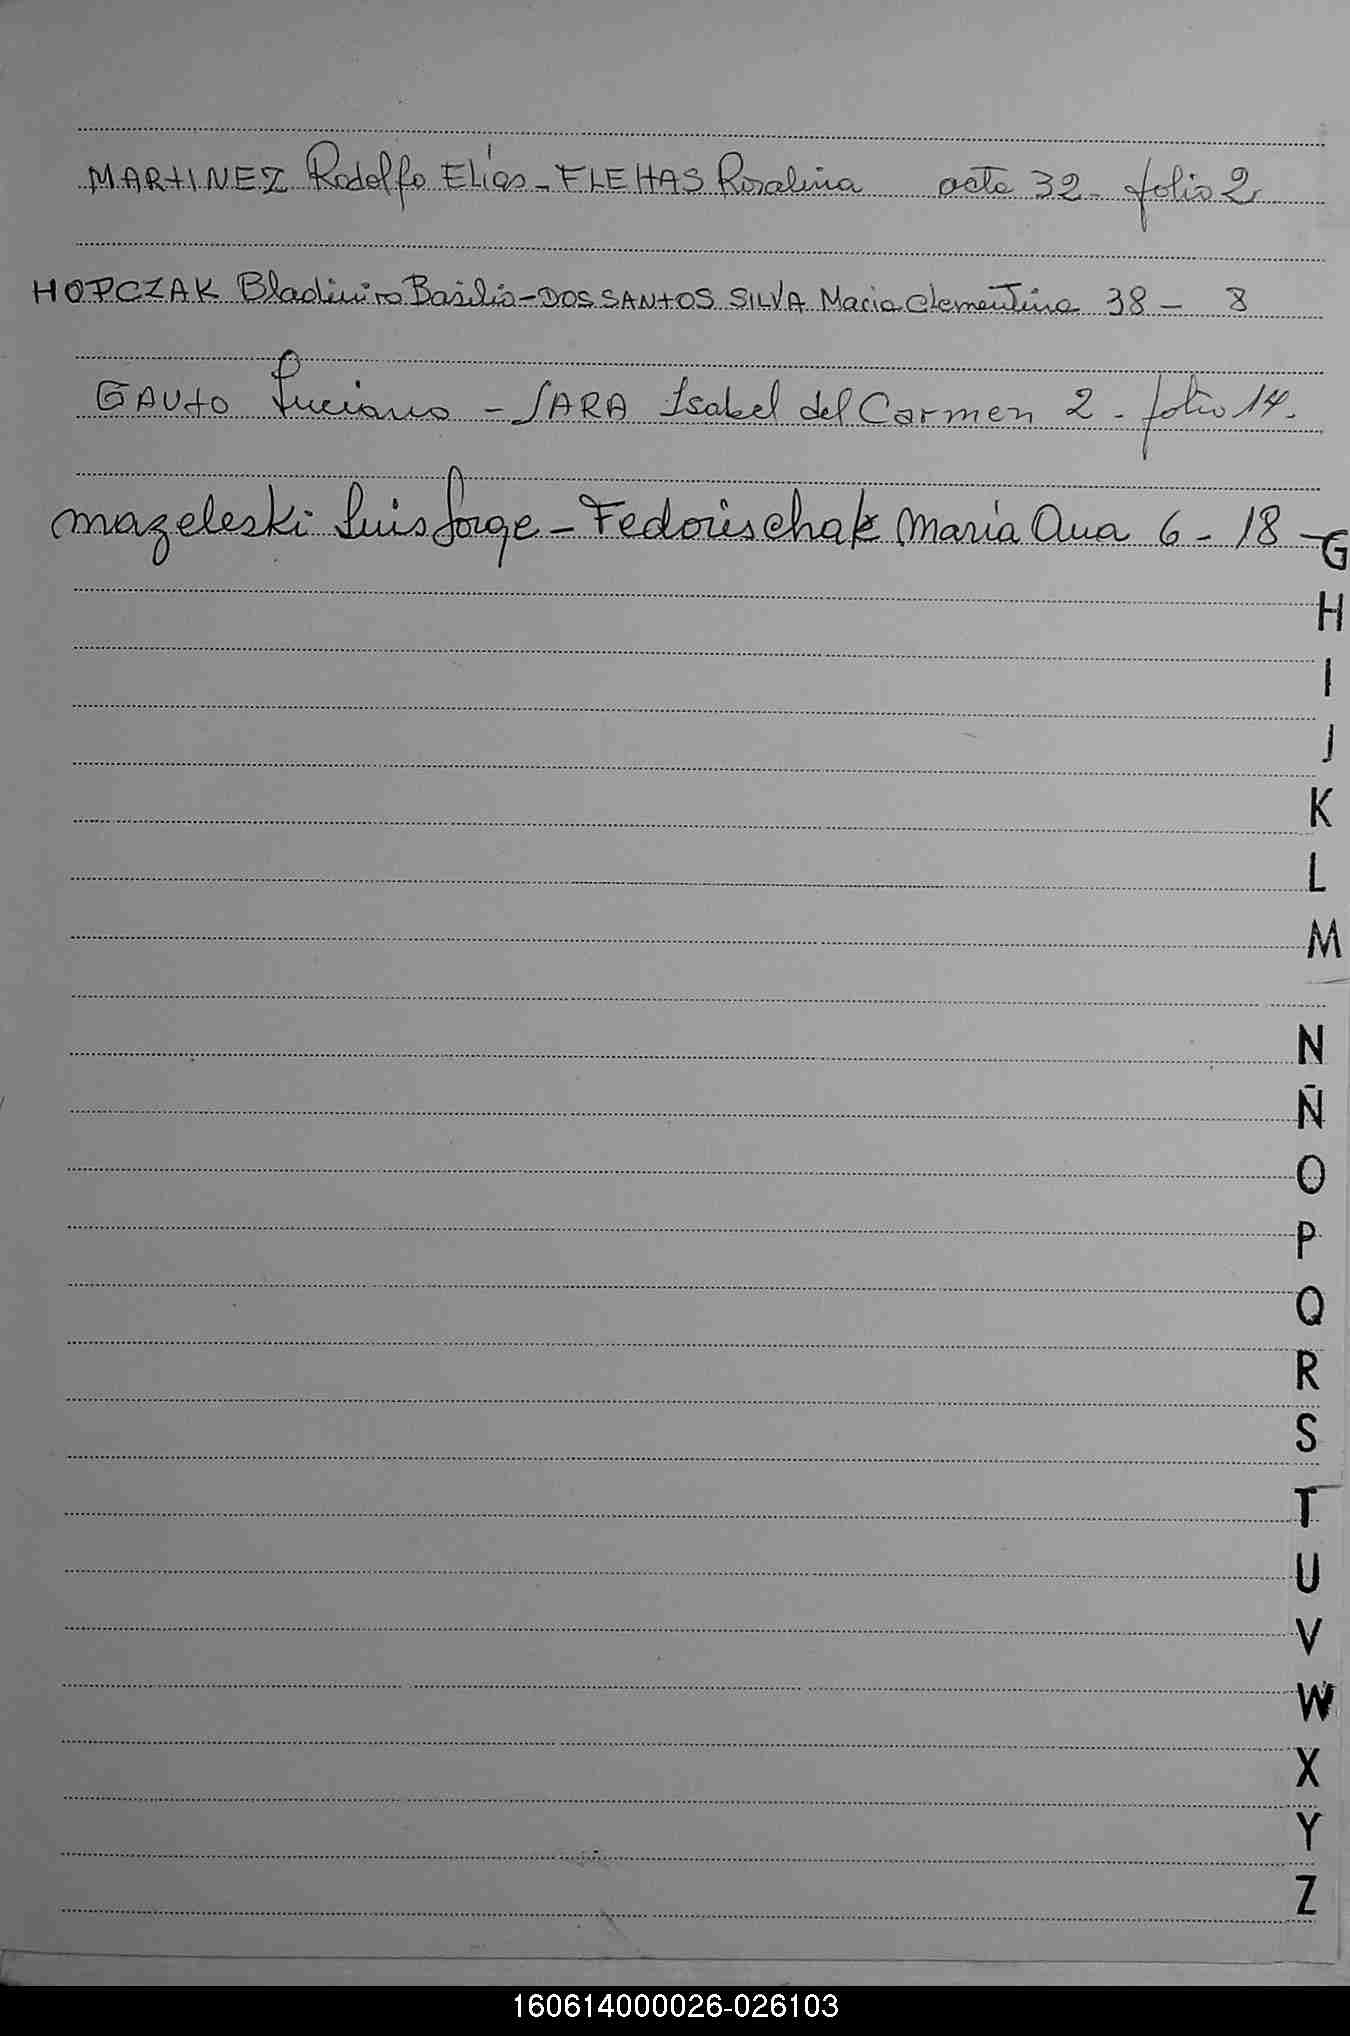 MARTINEZ Rodolfo Elías - FLEHAS Rosalina acta 32 - folio 2
HOPCZAK Bladimiro Basilio - DOS SANTOS SILVA Maria Clementina 38 - 8
GAUTO Luciano - JARA Isabel del Carmen 2 - folio 14.
Mazeleski Luis Jorge - Fedorischak María Ana 6 - 18 -
G
H
I
J
K
L
M
N
Ñ
O
P
Q
R
S
T
U
V
W
X
Y
Z
160614000026-026103